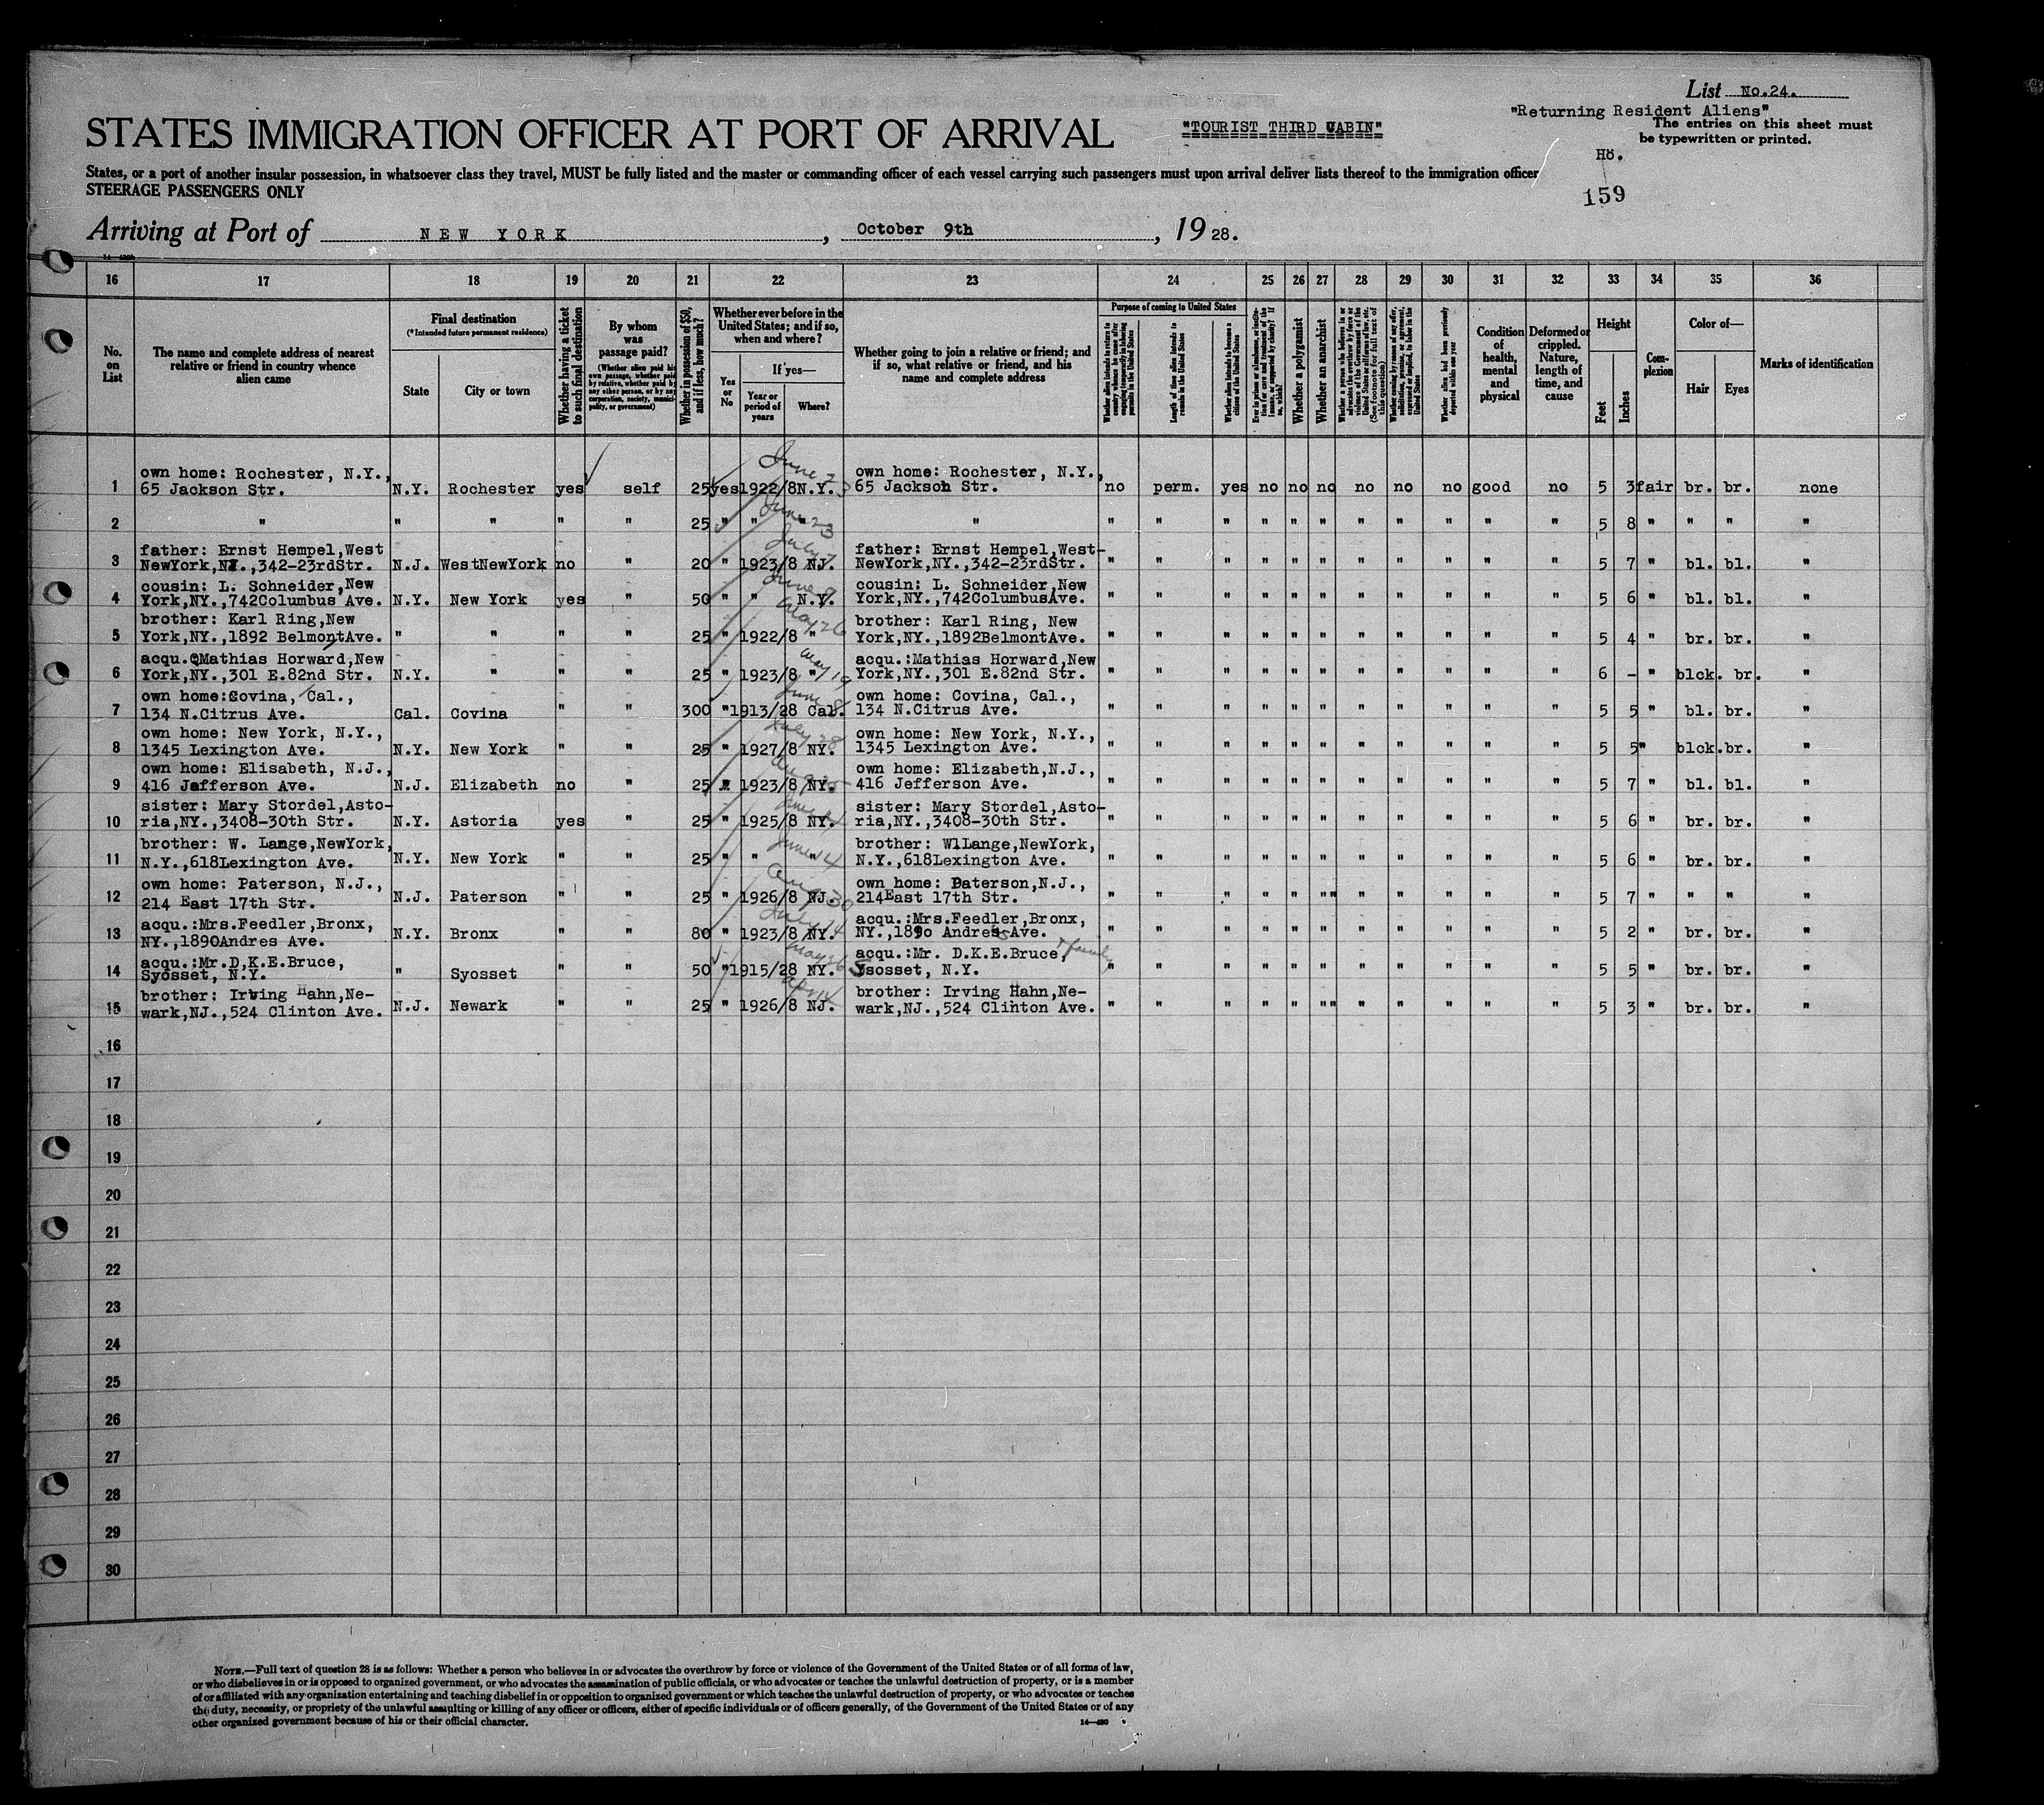 List No.24.
"Returning Resident Aliens"
STATES IMMIGRATION OFFICER AT PORT OF ARRIVAL
"TOURIST THIRD CABIN"
The entries on this sheet must
be typewritten or printed.
Hö.
States, or a port of another insular possession, in whatsoever class they travel, MUST be fully listed and the master or commanding officer of each vessel carrying such passengers must upon arrival deliver lists thereof to the immigration officer
STEERAGE PASSENGERS ONLY
159
Arriving at Port of NEW YORK, October 9th, 1928.
16 17 18 19 20 21 22 23 24 25 26 27 28 29 30 31 32 33 34 35 36
No. on List
The name and complete address of nearest relative or friend in country whence alien came
Final destination
(*Intended future permanent residence)
State
City or town
Whether having a ticket to such final destination
By whom was passage paid?
(Whether alien paid his own passage, whether paid by relative, whether paid by any other person, or by any corporation, society, municipality, or government)
Whether in possession of $50, and if less, how much?
Whether ever before in the United States; and if so, when and where?
Yes or No
If yes—
Year or period of years
Where?
Whether going to join a relative or friend; and if so, what relative or friend, and his name and complete address
Purpose of coming to United States
Whether alien intends to return to country whence he came after engaging temporarily in laboring pursuits in the United States
Length of time alien intends to remain in the United States
Whether alien intends to become a citizen of the United States
Ever in prison or almshouse, or institution for care and treatment of the insane, or supported by charity? If so, which?
Whether a polygamist
Whether an anarchist
Whether a person who believes in or advocates the overthrow by force or violence of the Government of the United States or all forms of law, etc. (See footnote for full text of this question)
Whether coming by reason of any offer, solicitation, promise, or agreement, expressed or implied, to labor in the United States
Whether alien had been previously deported within one year
Condition of health, mental and physical
Deformed or crippled. Nature, length of time, and cause
Height
Feet
Inches
Complexion
Color of—
Hair
Eyes
Marks of identification
1 own home: Rochester, N.Y., 65 Jackson Str. N.Y. Rochester yes self 25 yes 1922/8 N.Y. June 23 own home: Rochester, N.Y., 65 Jackson Str. no perm. yes no no no no no no good no 5 3 fair br. br. none
2 " " " " " 25 " " " June 23 " " " " " " " " " " " " 5 8 " " " "
3 father: Ernst Hempel,West NewYork,NJ.,342-23rdStr. N.J. WestNewYork no " 20 " 1923/8 NJ. July 7 father: Ernst Hempel,West-NewYork,NY.,342-23rdStr. " " " " " " " " " " " 5 7 " bl. bl. "
4 cousin: L. Schneider,New York,NY.,742Columbus Ave. N.Y. New York yes " 50 " " N.Y. June 9 cousin: L. Schneider,New York,NY.,742ColumbusAve. " " " " " " " " " " " 5 6 " bl. bl. "
5 brother: Karl Ring,New York,NY.,1892 BelmontAve. " " " " 25 " 1922/8 " May 26 brother: Karl Ring, New York,NY.,1892BelmontAve. " " " " " " " " " " " 5 4 " br. br. "
6 acqu.:Mathias Horward,New York,NY.,301 E.82nd Str. N.Y. " " " 25 " 1923/8 " May 19 acqu.:Mathias Horward,New York,NY.,301 E.82nd Str. " " " " " " " " " " " 6 - " blck. br. "
7 own home:Covina, Cal., 134 N.Citrus Ave. Cal. Covina " " 300 " 1913/28 Cal. June 8 own home: Covina, Cal., 134 N.Citrus Ave. " " " " " " " " " " " 5 5 " bl. br. "
8 own home: New York, N.Y., 1345 Lexington Ave. N.Y. New York " " 25 " 1927/8 NY. July 28 own home: New York, N.Y., 1345 Lexington Ave. " " " " " " " " " " " 5 5 " blck. br. "
9 own home: Elisabeth, N.J., 416 Jefferson Ave. N.J. Elizabeth no " 25 " 1923/8 NY. own home: Elizabeth,N.J., 416 Jefferson Ave. " " " " " " " " " " " 5 7 " bl. bl. "
10 sister: Mary Stordel,Asto-ria,NY.,3408-30th Str. N.Y. Astoria yes " 25 " 1925/8 NY. sister: Mary Stordel,Asto-ria,NY.,3408-30th Str. " " " " " " " " " " " 5 6 " br. br. "
11 brother: W. Lange,NewYork, N.Y.,618Lexington Ave. N.Y. New York " " 25 " " " June 14 brother: W.Lange,NewYork, N.Y.,618Lexington Ave. " " " " " " " " " " " 5 6 " br. br. "
12 own home: Paterson, N.J., 214 East 17th Str. N.J. Paterson " " 25 " 1926/8 NJ. Aug 30 own home: Paterson,N.J., 214East 17th Str. " " " " " "" " " " " " 5 7 " " " "
13 acqu.:Mrs.Feedler,Bronx, NY.,1890Andres Ave. N.Y. Bronx " " 80 " 1923/8 NY. July 14 acqu.:Mrs.Feedler,Bronx, NY.,1890 Andres Ave. " " " " " " " " " " " 5 2 " br. br. "
14 acqu.:Mr.D.K.E.Bruce, Syosset, N.Y. " Syosset " " 50 " 1915/28 NY. May 26 acqu.: Mr. D.K.E.Bruce, + family Syosset, N.Y. " " " " " " " " " " " 5 5 " br. br. "
15 brother: Irving Hahn,Ne-wark,NJ.,524 Clinton Ave. N.J. Newark " " 25 " 1926/8 NJ. Apr 14 brother: Irving Hahn,Ne-wark,NJ.,524 Clinton Ave. " " " " " "" " " " " " 5 3 " br. br. "
16
17
18
19
20
21
22
23
24
25
26
27
28
29
30
NOTE.—Full text of question 28 is as follows: Whether a person who believes in or advocates the overthrow by force or violence of the Government of the United States or of all forms of law,
or who disbelieves in or is opposed to organized government, or who advocates the assassination of public officials, or who advocates or teaches the unlawful destruction of property, or is a member
of or affiliated with any organization entertaining and teaching disbelief in or opposition to organized government or which teaches the unlawful destruction of property, or who advocates or teaches
the duty, necessity, or propriety of the unlawful assaulting or killing of any officer or officers, either of specific individuals or of officers generally, of the Government of the United States or of any
other organized government because of his or their official character.
14—430